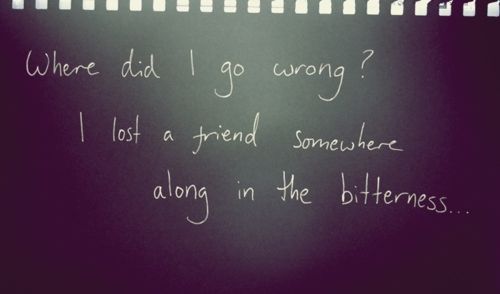 Where did I go wrong?
I lost a friend somewhere
along in the bitterness...